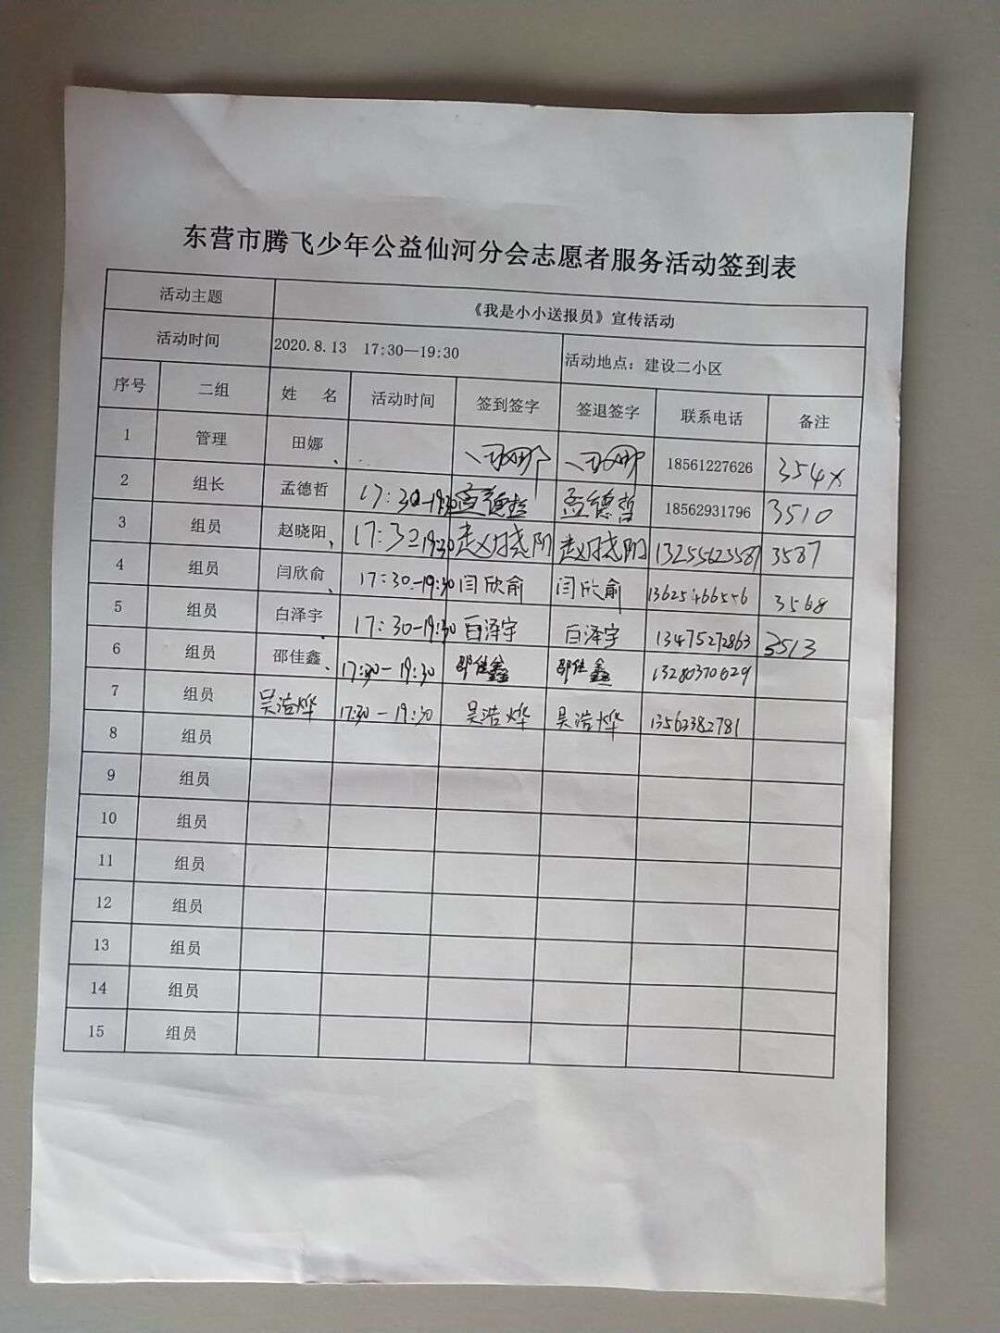 东营市腾飞少年公益仙河分会志愿者服务活动签到表
活动主题 《我是小小送报员》宣传活动
活动时间 2020.8.13 17:30—19:30 活动地点：建设二小区
序号 二组 姓 名 活动时间 签到签字 签退签字 联系电话 备注
1 管理 田娜 18561227626 354X
2 组长 孟德哲 17:30-19:30 孟德哲 孟德哲 18562931796 3510
3 组员 赵晓阳 17:30-19:30 赵晓阳 赵晓阳 13255623587 3587
4 组员 闫欣俞 17:30-19:30 闫欣俞 闫欣俞 13625466556 3568
5 组员 白泽宇 17:30-19:30 白泽宇 白泽宇 13475272863 3513
6 组员 邵佳鑫 17:30-19:30 邵佳鑫 邵佳鑫 13280370629
7 组员 吴浩烨 17:30-19:30 吴浩烨 吴浩烨 13563382781
8 组员
9 组员
10 组员
11 组员
12 组员
13 组员
14 组员
15 组员